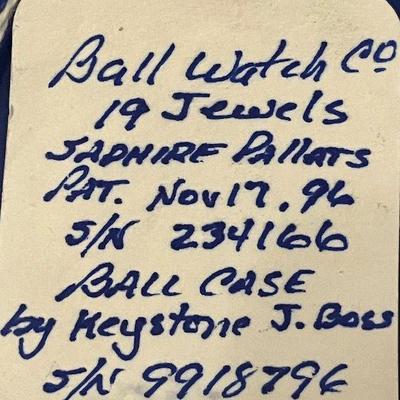 Ball Watch Co
19 Jewels
SAPHIRE PallATS
PAT. Nov 17. 96
S/N 234166
BALL CASE
by Keystone J. Boss
S/N 9918796